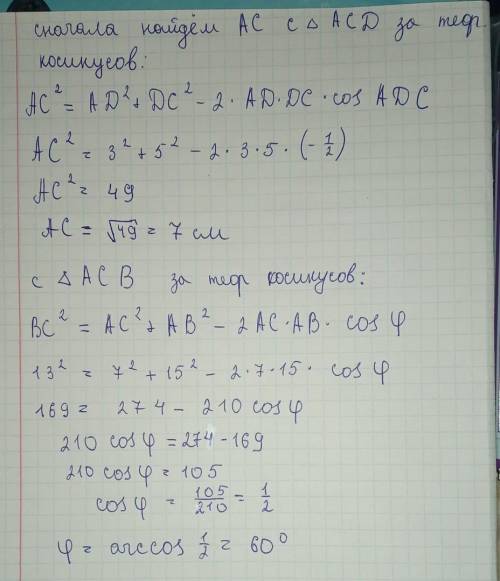 сначала найдём AC с △ ACD за теор.
косинусов:
AC² = AD² + DC² - 2 · AD · DC · cos ADC
AC² = 3² + 5² - 2 · 3 · 5 · (-1/2)
AC² = 49
AC = √49 = 7 см
с △ ACB за теор косинусов:
BC² = AC² + AB² - 2AC · AB · cos φ
13² = 7² + 15² - 2 · 7 · 15 · cos φ
169 = 274 - 210 cos φ
210 cos φ = 274 - 169
210 cos φ = 105
cos φ = 105/210 = 1/2
φ = arccos 1/2 = 60⁰